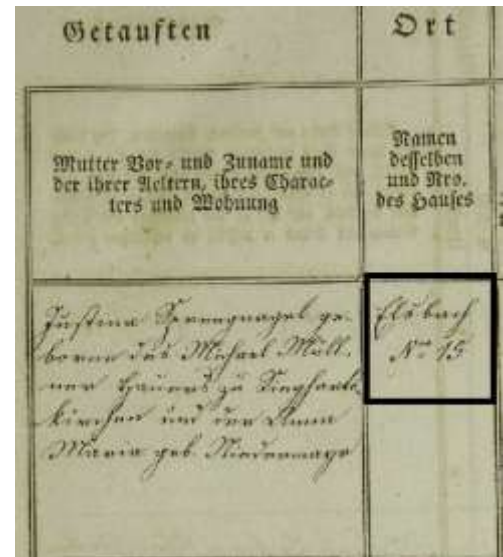 Getauften
Ort
Mutter Vor- und Zuname und
der ihrer Aeltern, ihres Charac-
ters und Wohnung
Namen
desselben
und Nro.
des Hauses
Justina Sprengnagel ge-
borne des Michael Müll-
ner Hauers zu Siegharts
kirchen und der Anna
Maria geb. Niedermayr
Elsbach
No 15